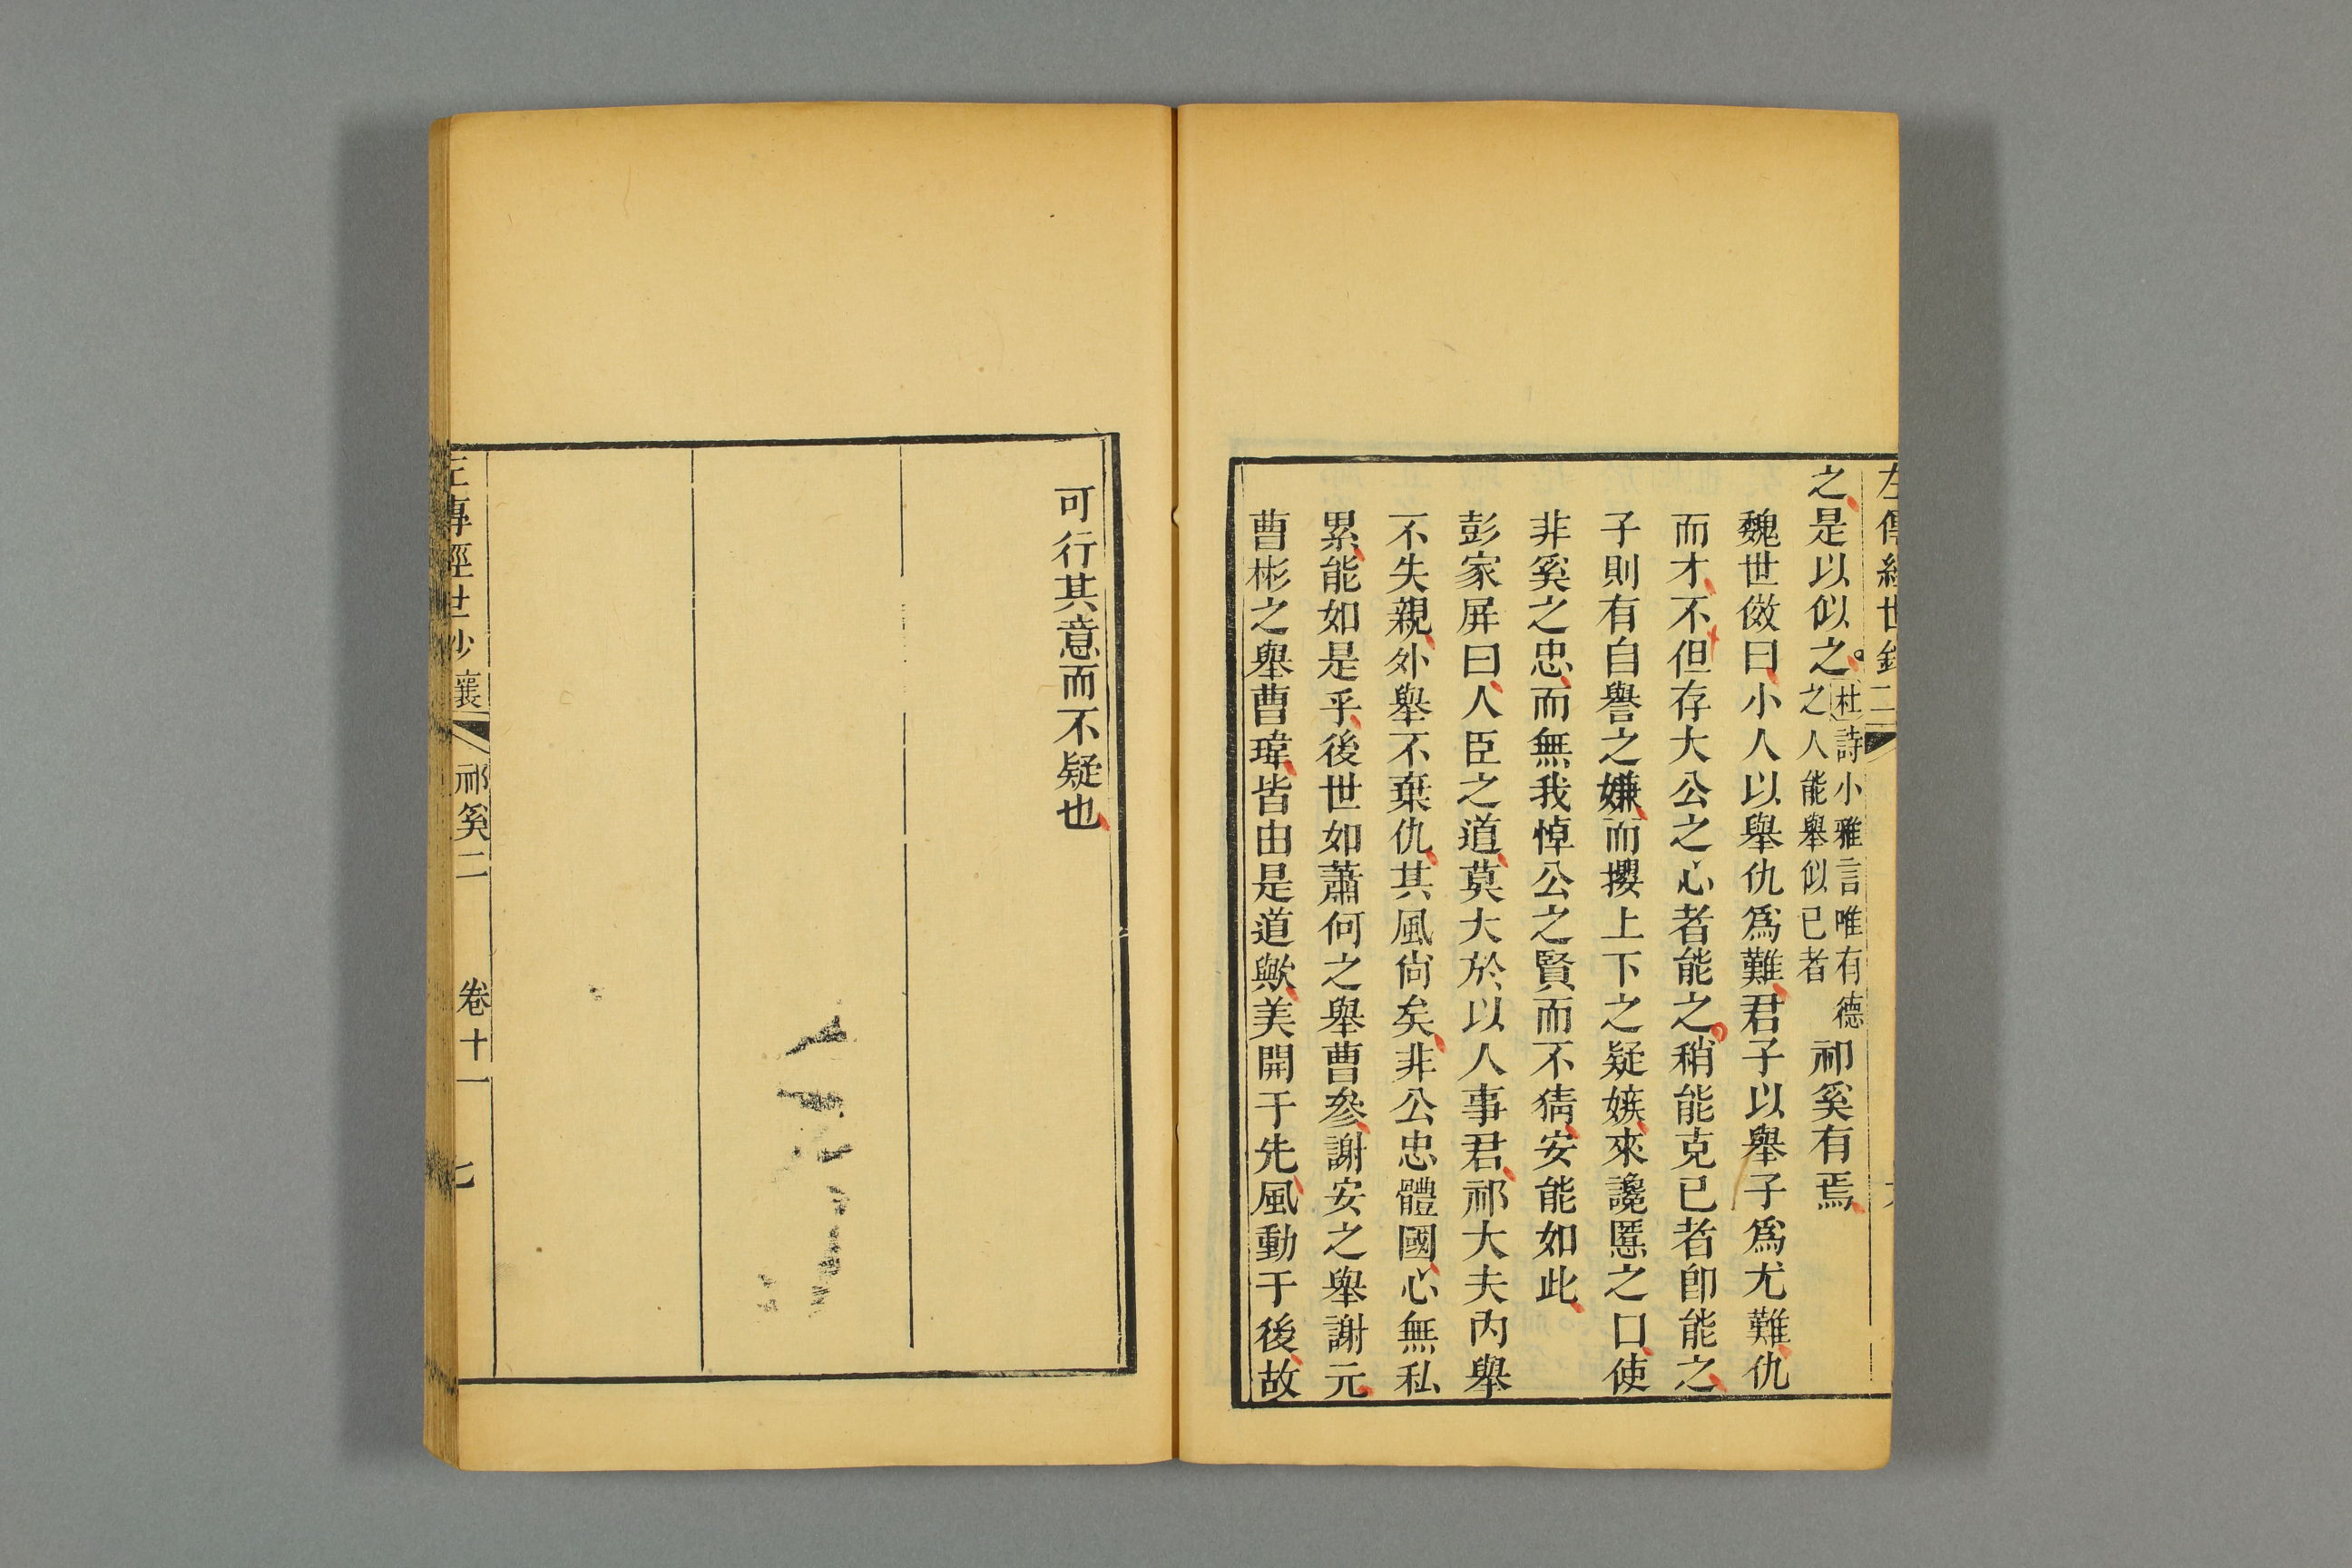 之是以似之杜詩小雅言唯有德之人能舉似已者祁奚有焉
魏世傚曰小人以舉仇爲難君子以舉子爲尤難仇
而才不但存大公之心者能之稍能克已者卽能之
子則有自譽之嫌而攖上下之疑嫉來讒慝之口使
非奚之忠而無我悼公之賢而不猜安能如此
彭家屏曰人臣之道莫大於以人事君祁大夫內舉
不失親外舉不棄仇其風尙矣非公忠體國心無私
累能如是乎後世如蕭何之舉曹參謝安之舉謝元
曹彬之舉曹瑋皆由是道歟美開于先風動于後故
可行其意而不疑也
左傳經世鈔 襄 祁奚二 卷十一 七